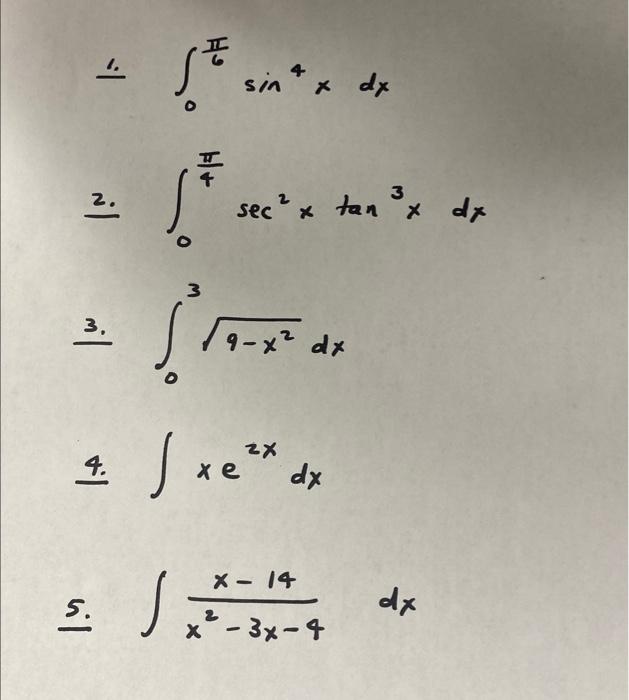 1. ∫₀^(π/6) sin⁴ x dx
2. ∫₀^(π/4) sec² x tan³ x dx
3. ∫₀³ √(9-x²) dx
4. ∫ x e^(2x) dx
5. ∫ (x - 14)/(x² - 3x - 4) dx